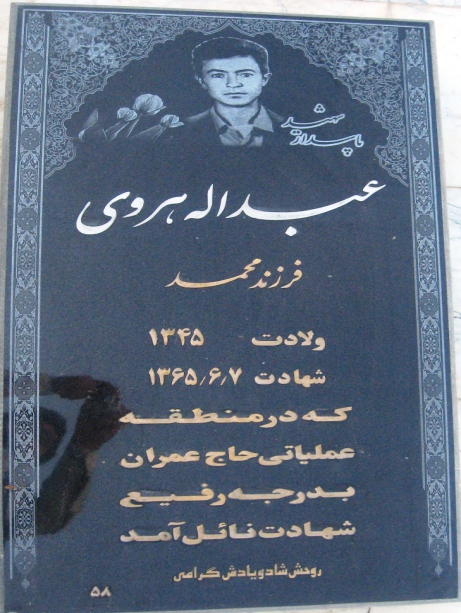 شهید
پاسدار
عبداله هروی
فرزند محمد
ولادت ۱۳۴۵
شهادت ۱۳۶۵٫۶٫۷
که در منطقه
عملیاتی حاج عمران
بدرجه رفیع
شهادت نائل آمد
روحش شاد و یادش گرامی
۵۸